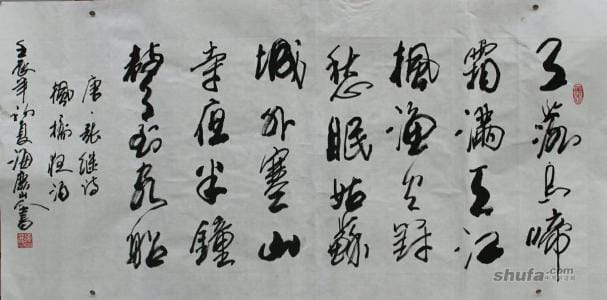 月落乌啼
霜满天江
楓渔火对
愁眠姑蘇
城外寒山
寺夜半鐘
聲到客船
唐·张继诗
楓橋夜泊
壬辰年初夏海
shufa.com